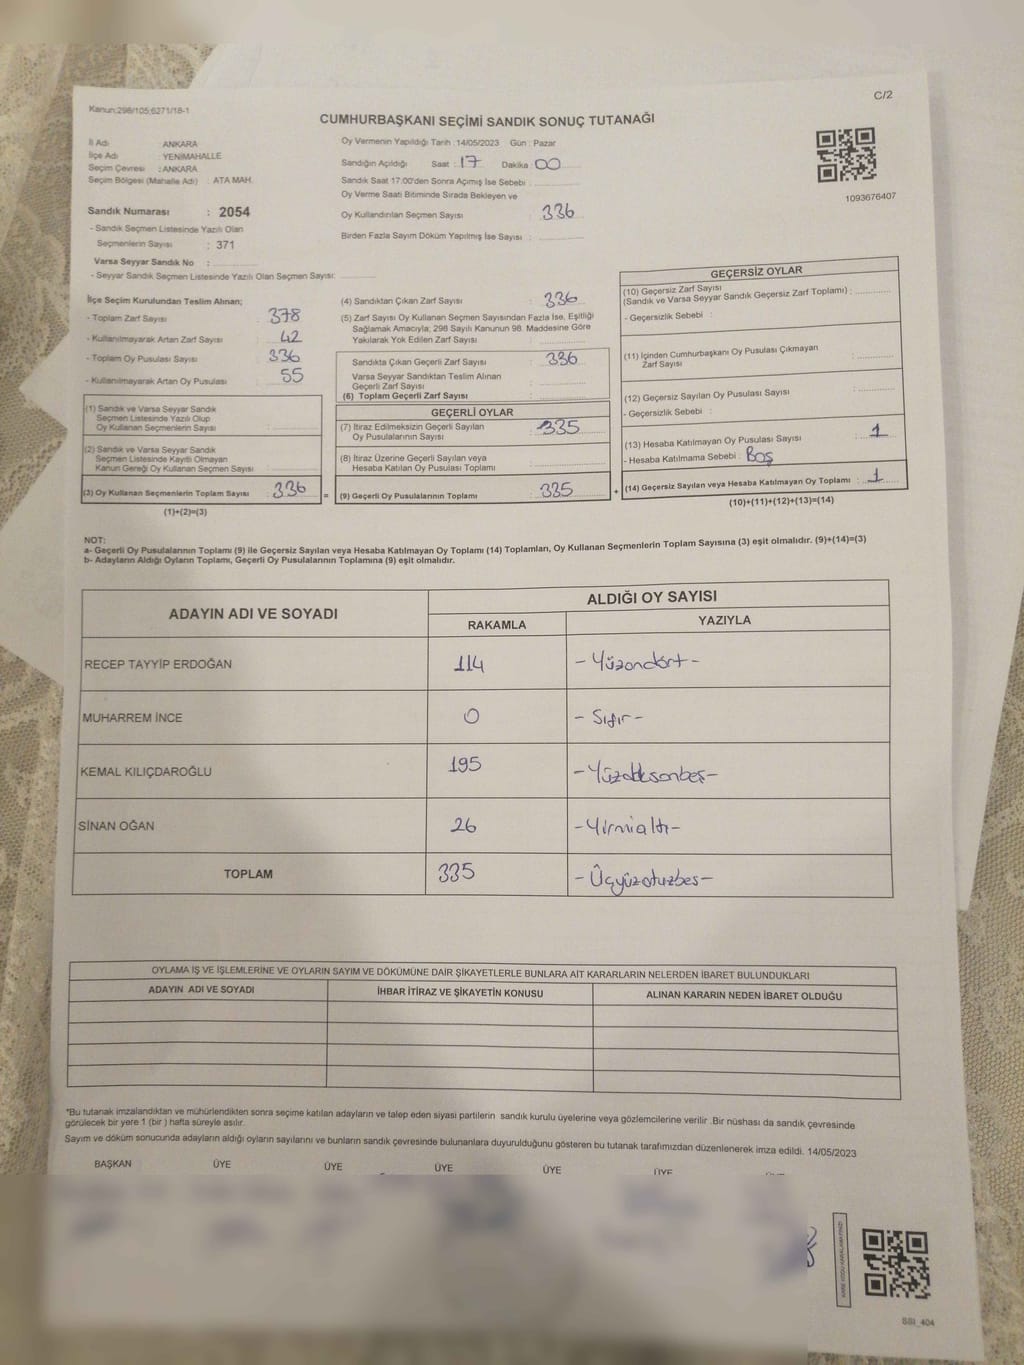 Kanun:298/105;6271/18-1
C/2
CUMHURBAŞKANI SEÇİMİ SANDIK SONUÇ TUTANAĞI
İl Adı ANKARA
İlçe Adı : YENİMAHALLE
Seçim Çevresi : ANKARA
Seçim Bölgesi (Mahalle Adı) : ATA MAH.
Sandık Numarası : 2054
- Sandık Seçmen Listesinde Yazılı Olan
Seçmenlerin Sayısı : 371
Varsa Seyyar Sandık No :
- Seyyar Sandık Seçmen Listesinde Yazılı Olan Seçmen Sayısı:
Oy Vermenin Yapıldığı Tarih :14/05/2023 Gün : Pazar
Sandığın Açıldığı Saat : 17 Dakika : 00
Sandık Saat 17:00'den Sonra Açımış İse Sebebi :
Oy Verme Saati Bitiminde Sırada Bekleyen ve
Oy Kullandırılan Seçmen Sayısı 336
Birden Fazla Sayım Döküm Yapılmış İse Sayısı :
1093676407
İlçe Seçim Kurulundan Teslim Alınan;
- Toplam Zarf Sayısı 378
- Kullanılmayarak Artan Zarf Sayısı 42
- Toplam Oy Pusulası Sayısı 336
- Kullanılmayarak Artan Oy Pusulası 55
(1) Sandık ve Varsa Seyyar Sandık
Seçmen Listesinde Yazılı Olup
Oy Kullanan Seçmenlerin Sayısı :
(2) Sandık ve Varsa Seyyar Sandık
Seçmen Listesinde Kayıtlı Olmayan
Kanun Gereği Oy Kullanan Seçmen Sayısı :
(3) Oy Kullanan Seçmenlerin Toplam Sayısı : 336 =
(1)+(2)=(3)
(4) Sandıktan Çıkan Zarf Sayısı : 336
(5) Zarf Sayısı Oy Kullanan Seçmen Sayısından Fazla İse, Eşitliği
Sağlamak Amacıyla; 298 Sayılı Kanunun 98. Maddesine Göre
Yakılarak Yok Edilen Zarf Sayısı
Sandıkta Çıkan Geçerli Zarf Sayısı : 336
Varsa Seyyar Sandıktan Teslim Alınan
Geçerli Zarf Sayısı
(6) Toplam Geçerli Zarf Sayısı
GEÇERLİ OYLAR
(7) İtiraz Edilmeksizin Geçerli Sayılan
Oy Pusulalarının Sayısı 335
(8) İtiraz Üzerine Geçerli Sayılan veya
Hesaba Katılan Oy Pusulası Toplamı
(9) Geçerli Oy Pusulalarının Toplamı : 335 +
GEÇERSİZ OYLAR
(10) Geçersiz Zarf Sayısı
(Sandık ve Varsa Seyyar Sandık Geçersiz Zarf Toplamı) :
- Geçersizlik Sebebi :
(11) İçinden Cumhurbaşkanı Oy Pusulası Çıkmayan
Zarf Sayısı :
(12) Geçersiz Sayılan Oy Pusulası Sayısı :
- Geçersizlik Sebebi :
(13) Hesaba Katılmayan Oy Pusulası Sayısı : 1
- Hesaba Katılmama Sebebi : Boş
(14) Geçersiz Sayılan veya Hesaba Katılmayan Oy Toplamı : 1
(10)+(11)+(12)+(13)=(14)
NOT:
a- Geçerli Oy Pusulalarının Toplamı (9) ile Geçersiz Sayılan veya Hesaba Katılmayan Oy Toplamı (14) Toplamları, Oy Kullanan Seçmenlerin Toplam Sayısına (3) eşit olmalıdır. (9)+(14)=(3)
b- Adayların Aldığı Oyların Toplamı, Geçerli Oy Pusulalarının Toplamına (9) eşit olmalıdır.
ADAYIN ADI VE SOYADI ALDIĞI OY SAYISI
RAKAMLA YAZIYLA
RECEP TAYYİP ERDOĞAN 114 -Yüzondört-
MUHARREM İNCE 0 -Sıfır-
KEMAL KILIÇDAROĞLU 195 -Yüzdoksanbeş-
SİNAN OĞAN 26 -Yirmialtı-
TOPLAM 335 -Üçyüzotuzbeş-
OYLAMA İŞ VE İŞLEMLERİNE VE OYLARIN SAYIM VE DÖKÜMÜNE DAİR ŞİKAYETLERLE BUNLARA AİT KARARLARIN NELERDEN İBARET BULUNDUKLARI
ADAYIN ADI VE SOYADI İHBAR İTİRAZ VE ŞİKAYETİN KONUSU ALINAN KARARIN NEDEN İBARET OLDUĞU
*Bu tutanak imzalandıktan ve mühürlendikten sonra seçime katılan adayların ve talep eden siyasi partilerin sandık kurulu üyelerine veya gözlemcilerine verilir .Bir nüshası da sandık çevresinde
görülecek bir yere 1 (bir ) hafta süreyle asılır.
Sayım ve döküm sonucunda adayların aldığı oyların sayılarını ve bunların sandık çevresinde bulunanlara duyurulduğunu gösteren bu tutanak tarafımızdan düzenlenerek imza edildi. 14/05/2023
BAŞKAN ÜYE ÜYE ÜYE ÜYE ÜYE
SSI_404